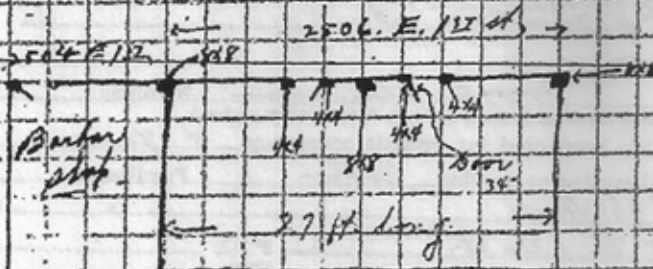 2506. E. 1st st
2504 E 1st
8x8
8x8
Barber
Shop
4x4
4x4
8x8
4x4
4x4
Door
34"
27 ft. Long.